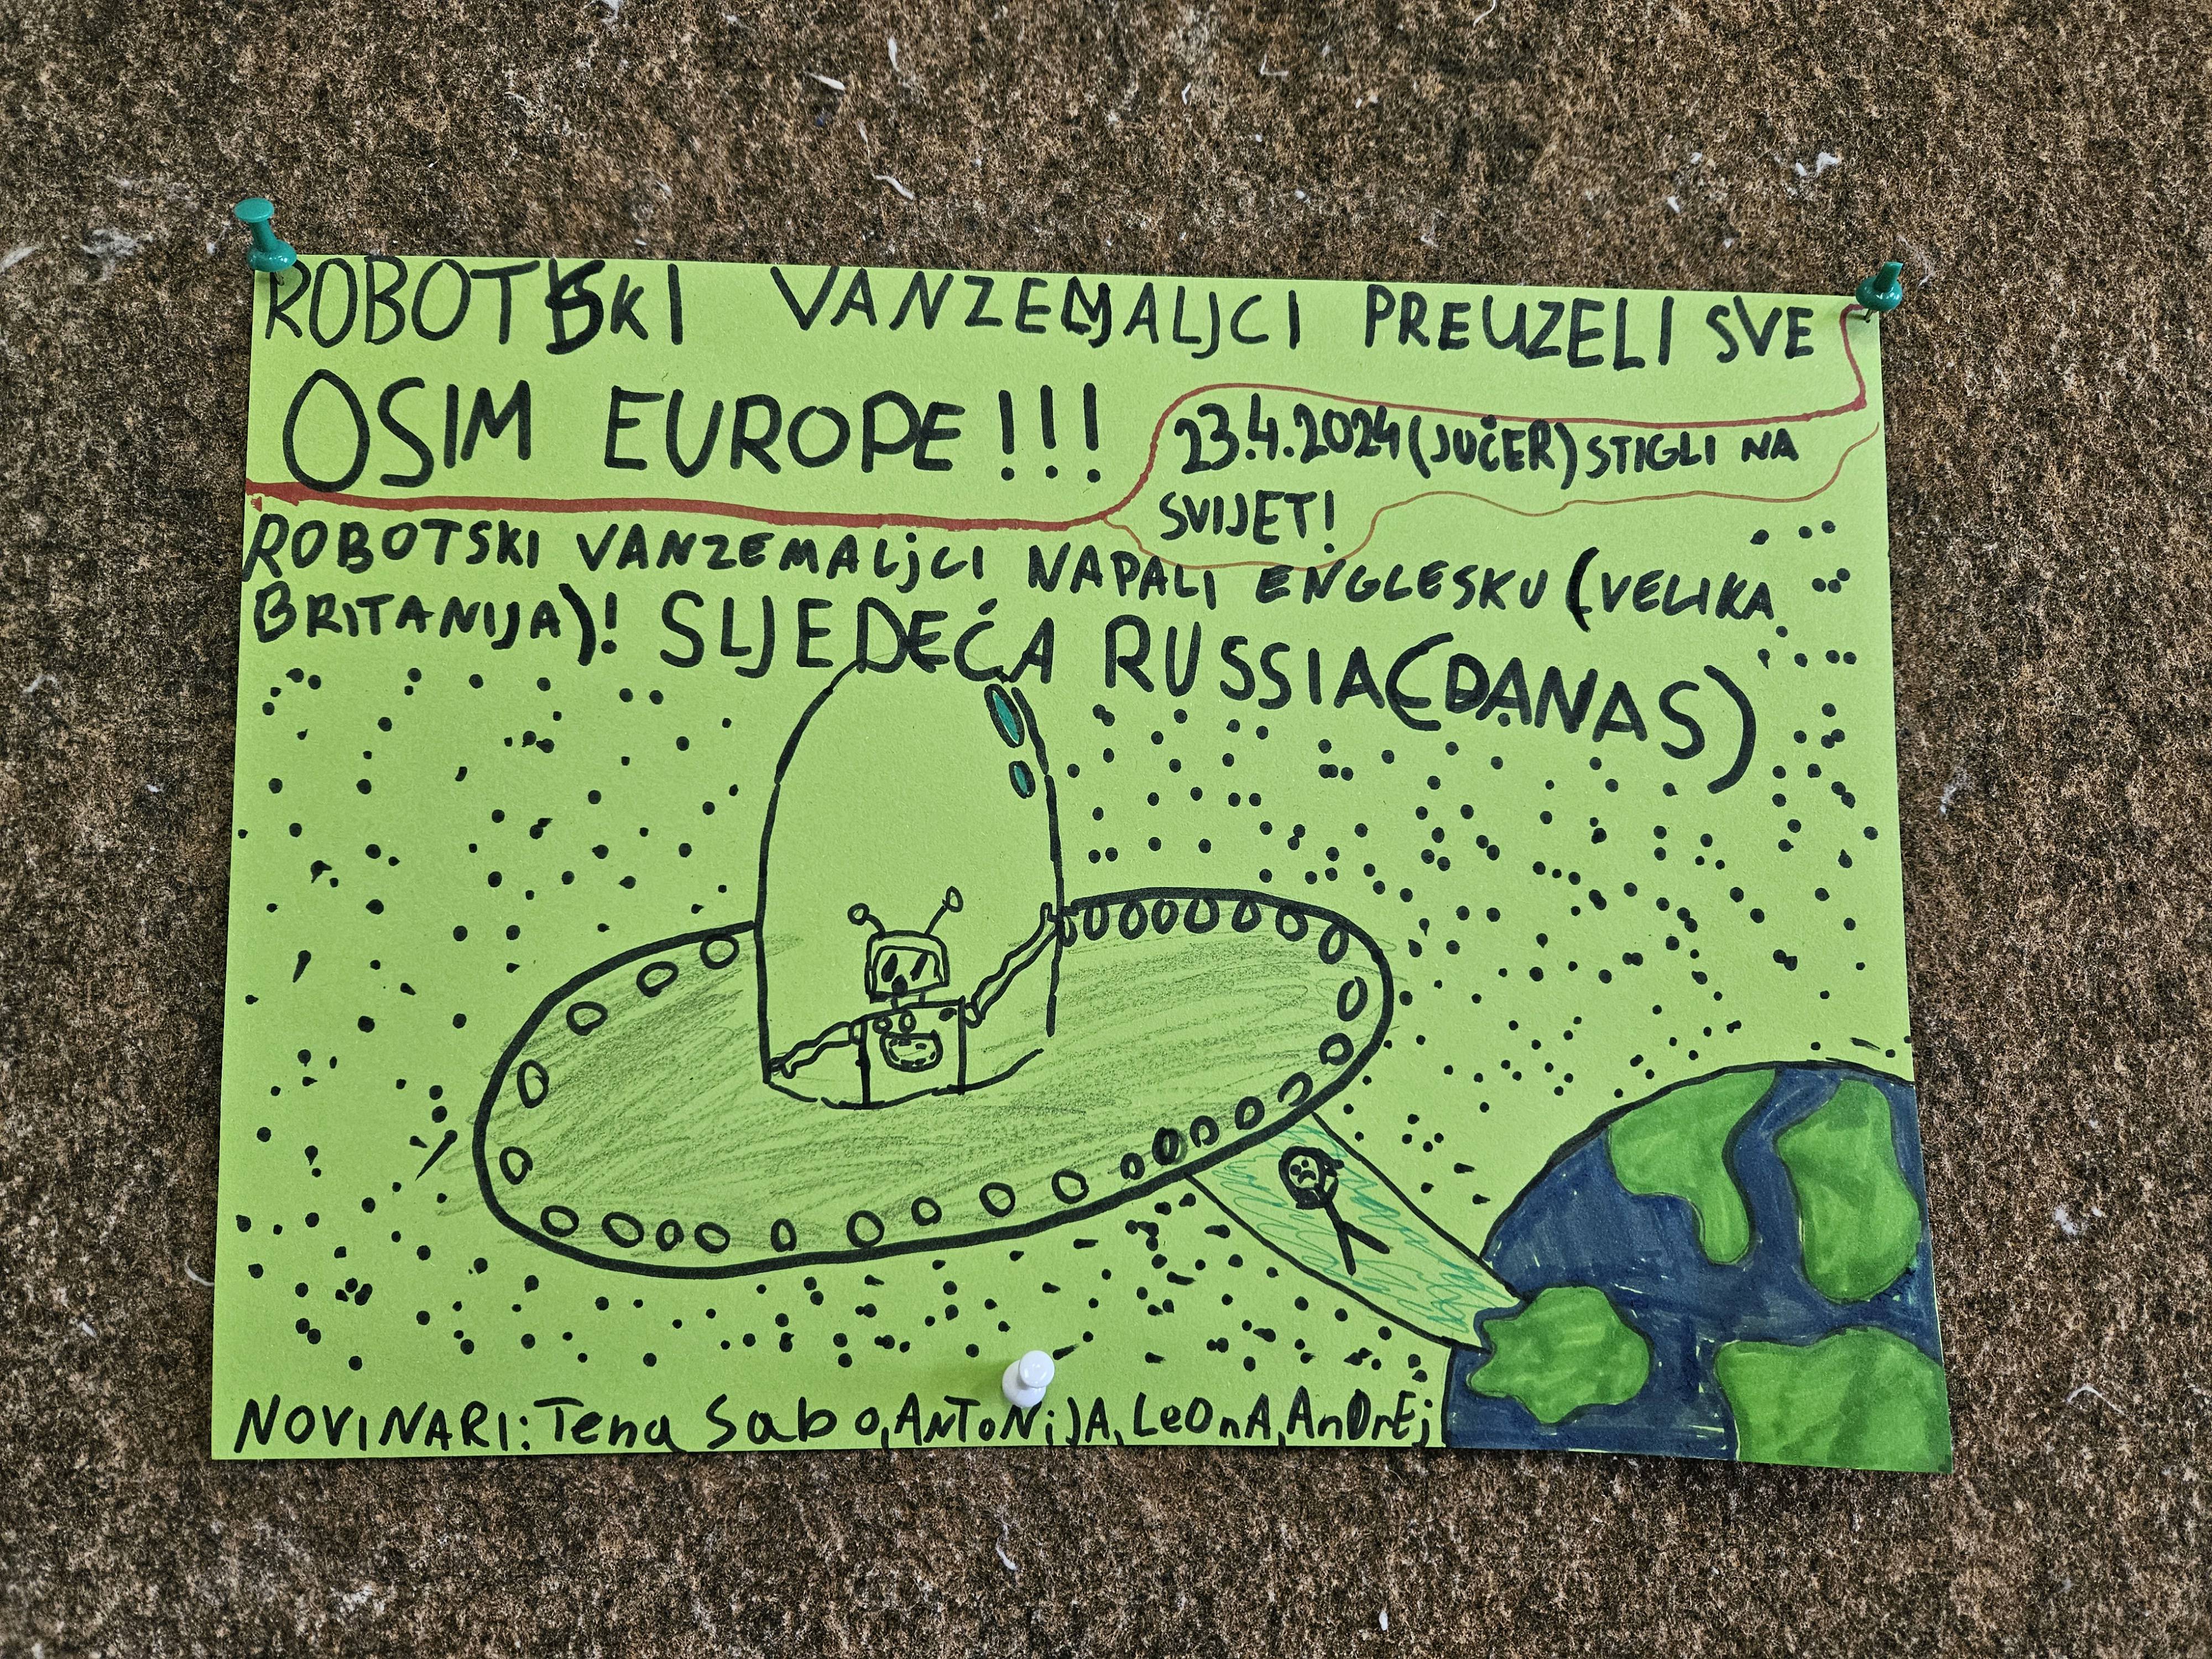 ROBOTSKI VANZEMALJCI PREUZELI SVE
OSIM EUROPE!!!
23.4.2024 (JUČER) STIGLI NA
SVIJET!
ROBOTSKI VANZEMALJCI NAPALI ENGLESKU (VELIKA
BRITANIJA)! SLJEDEĆA RUSSIA (DANAS)
NOVINARI: Tena Sabo, ANToNiJA, LeOnA, AnDrEj